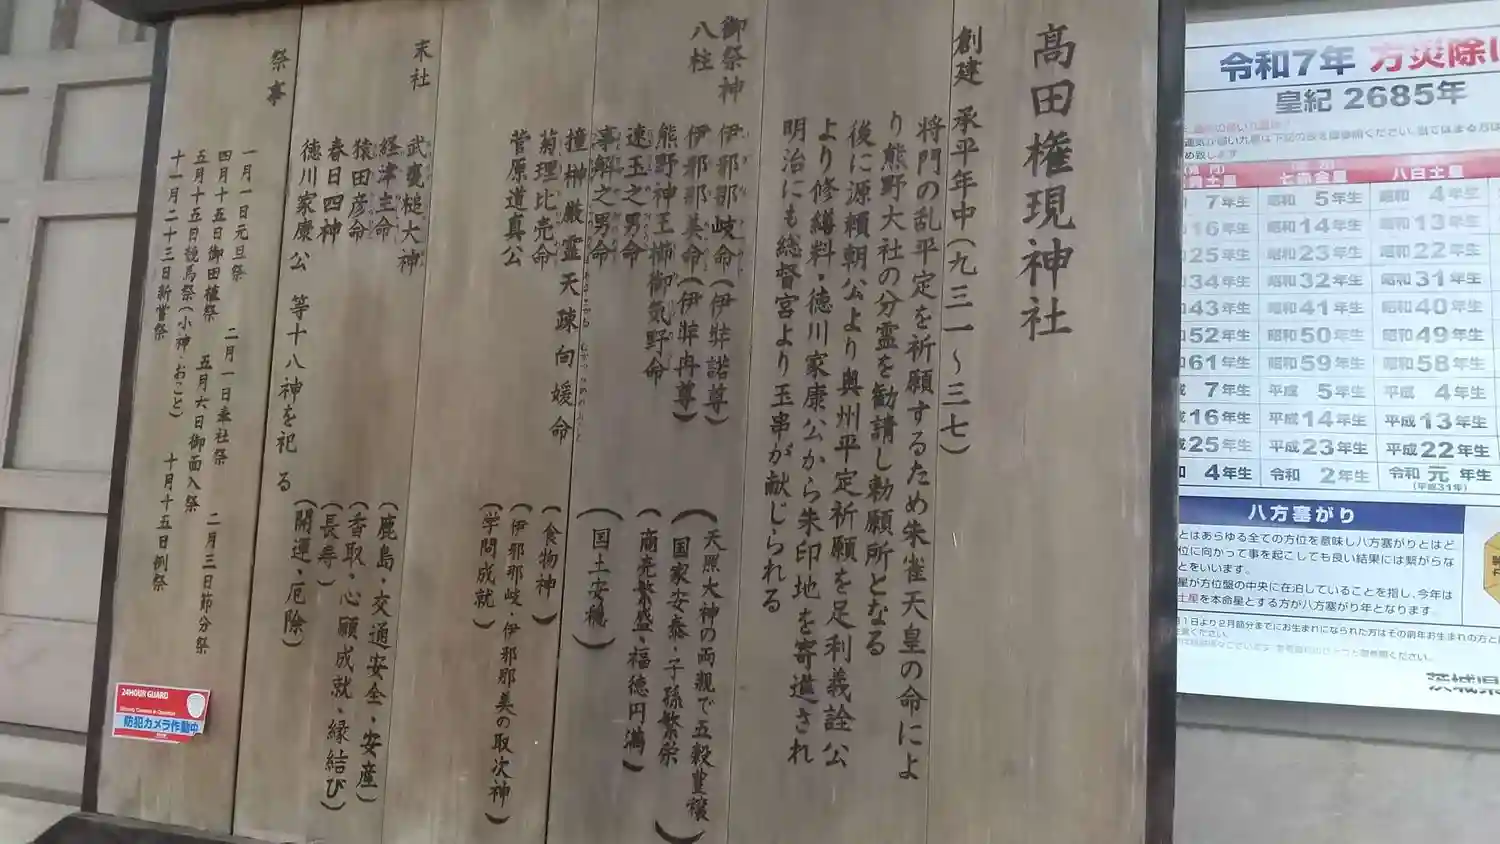 髙田権現神社
創建 承平年中(九三一～三七)
将門の乱平定を祈願するため朱雀天皇の命によ
り熊野大社の分霊を勧請し勅願所となる
後に源頼朝公より奥州平定祈願を足利義詮公
より修繕料・徳川家康公から朱印地を寄進され
明治にも総督宮より玉串が献じられる
御祭神
八柱
伊邪那岐命(伊弉諾尊)
伊邪那美命(伊弉冉尊)
(天照大神の両親で五穀豊穣
国家安泰・子孫繁栄)
熊野神王櫛御気野命
(商売繁盛・福徳円満)
速玉之男命
事解之男命
(国土安穏)
撞榊厳霊天疎向媛命
菊理比売命
(食物神)
(伊邪那岐・伊邪那美の取次神)
菅原道真公
(学問成就)
末社
武甕槌大神
(鹿島・交通安全・安産)
経津主命
(香取・心願成就・縁結び)
猿田彦命
(長寿)
春日四神
(開運・厄除)
徳川家康公 等十八神を祀る
祭事
一月一日元旦祭 二月一日奉社祭 二月三日節分祭
四月十五日御田植祭 五月六日御面入祭
五月十五日競馬祭(小神・おこと) 十月十五日例祭
十一月二十三日新嘗祭
24HOUR GUARD
防犯カメラ作動中
令和7年 方災除
皇紀 2685年
七赤金星 八白土星
7年生 昭和 5年生 昭和 4年生
16年生 昭和14年生 昭和13年生
25年生 昭和23年生 昭和22年生
34年生 昭和32年生 昭和31年生
43年生 昭和41年生 昭和40年生
52年生 昭和50年生 昭和49年生
61年生 昭和59年生 昭和58年生
7年生 平成 5年生 平成 4年生
16年生 平成14年生 平成13年生
25年生 平成23年生 平成22年生
4年生 令和 2年生 令和 元 年生
(平成31年)
八方塞がり
とはあらゆる全ての方位を意味し八方塞がりとはど
位に向かって事を起こしても良い結果には繋がらな
とをいいます。
星が方位盤の中央に在泊していることを指し、今年は
土星を本命星とする方が八方塞がり年となります。
月1日より2月節分までにお生まれになられた方はその前年お生まれの方と
茨城県